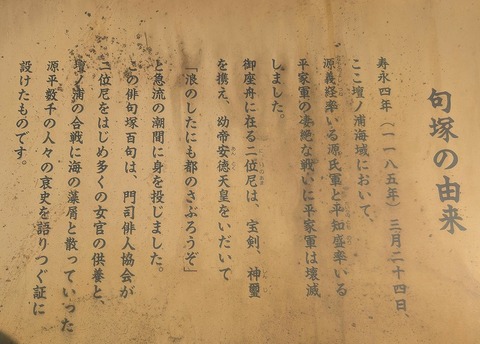 句塚の由来
寿永四年(一一八五年)三月二十四日、
ここ壇ノ浦海域において、
源義経率いる源氏軍と平知盛率いる
平家軍の凄絶な戦いに平家軍は壊滅
しました。
御座舟に在る二位尼は、宝剣、神璽
を携え、幼帝安徳天皇をいだいて
「浪のしたにも都のさぶろうぞ」
と急流の潮間に身を投じました。
この俳句塚百句は、門司俳人協会が
二位尼をはじめ多くの女官の供養と、
壇ノ浦の合戦に海の藻屑と散っていった
源平数千の人々の哀史を語りつぐ証に
設けたものです。